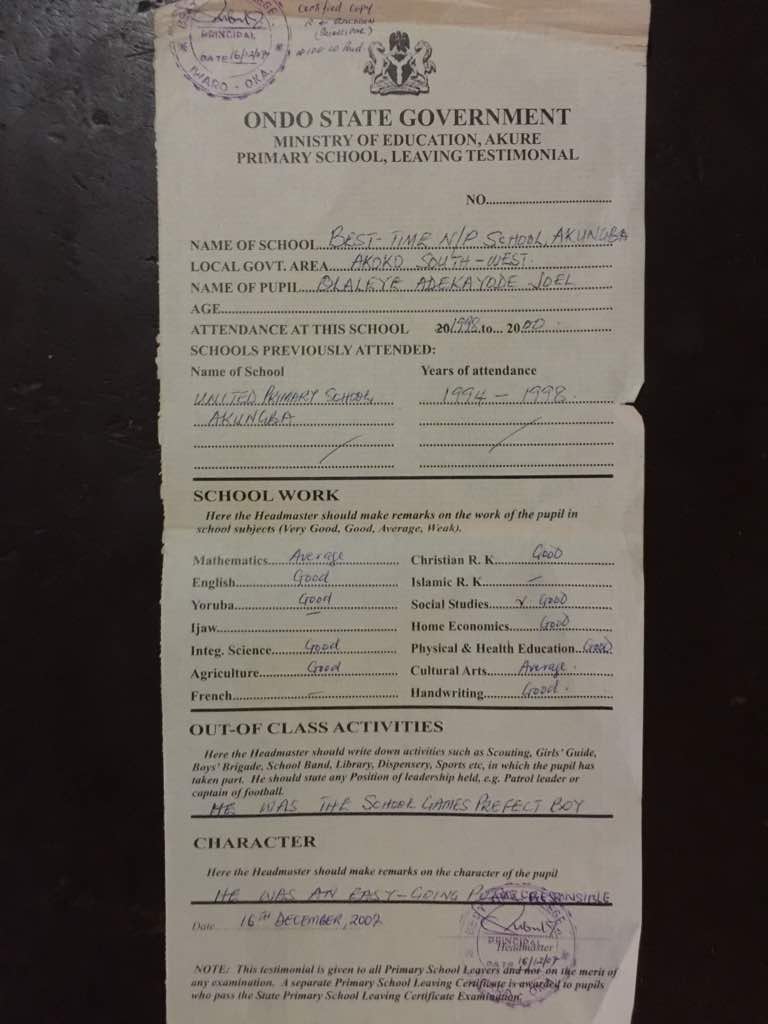 Certified Copy
PRINCIPAL
DATE 16/12/07
IWARO - OKA.
ONDO STATE GOVERNMENT
MINISTRY OF EDUCATION, AKURE
PRIMARY SCHOOL, LEAVING TESTIMONIAL
NO.
NAME OF SCHOOL BEST-TIME N/P SCHOOL, AKUNGBA
LOCAL GOVT. AREA AKOKO SOUTH-WEST.
NAME OF PUPIL OLALEYE ADEKAYODE JOEL
AGE
ATTENDANCE AT THIS SCHOOL 20/1998 to... 2000
SCHOOLS PREVIOUSLY ATTENDED:
Name of School Years of attendance
UNITED PRIMARY SCHOOL, 1994 - 1998.
AKUNGBA
SCHOOL WORK
Here the Headmaster should make remarks on the work of the pupil in
school subjects (Very Good, Good, Average, Weak).
Mathematics Average Christian R. K Good
English Good Islamic R. K –
Yoruba Good Social Studies Good
Ijaw – Home Economics Good
Integ. Science Good Physical & Health Education Good
Agriculture Good Cultural Arts Average.
French – Handwriting Good.
OUT-OF CLASS ACTIVITIES
Here the Headmaster should write down activities such as Scouting, Girls' Guide,
Boys' Brigade, School Band, Library, Dispensery, Sports etc, in which the pupil has
taken part. He should state any Position of leadership held, e.g. Patrol leader or
captain of football.
HE WAS THE SCHOOL GAMES PREFECT BOY
CHARACTER
Here the Headmaster should make remarks on the character of the pupil
HE WAS AN EASY-GOING RESPONSIBLE
Date 16TH DECEMBER, 2007
Headmaster
PRINCIPAL
DATE 16/12/07
NOTE: This testimonial is given to all Primary School Leavers and not on the merit of
any examination. A separate Primary School Leaving Certificate is awarded to pupils
who pass the State Primary School Leaving Certificate Examination.